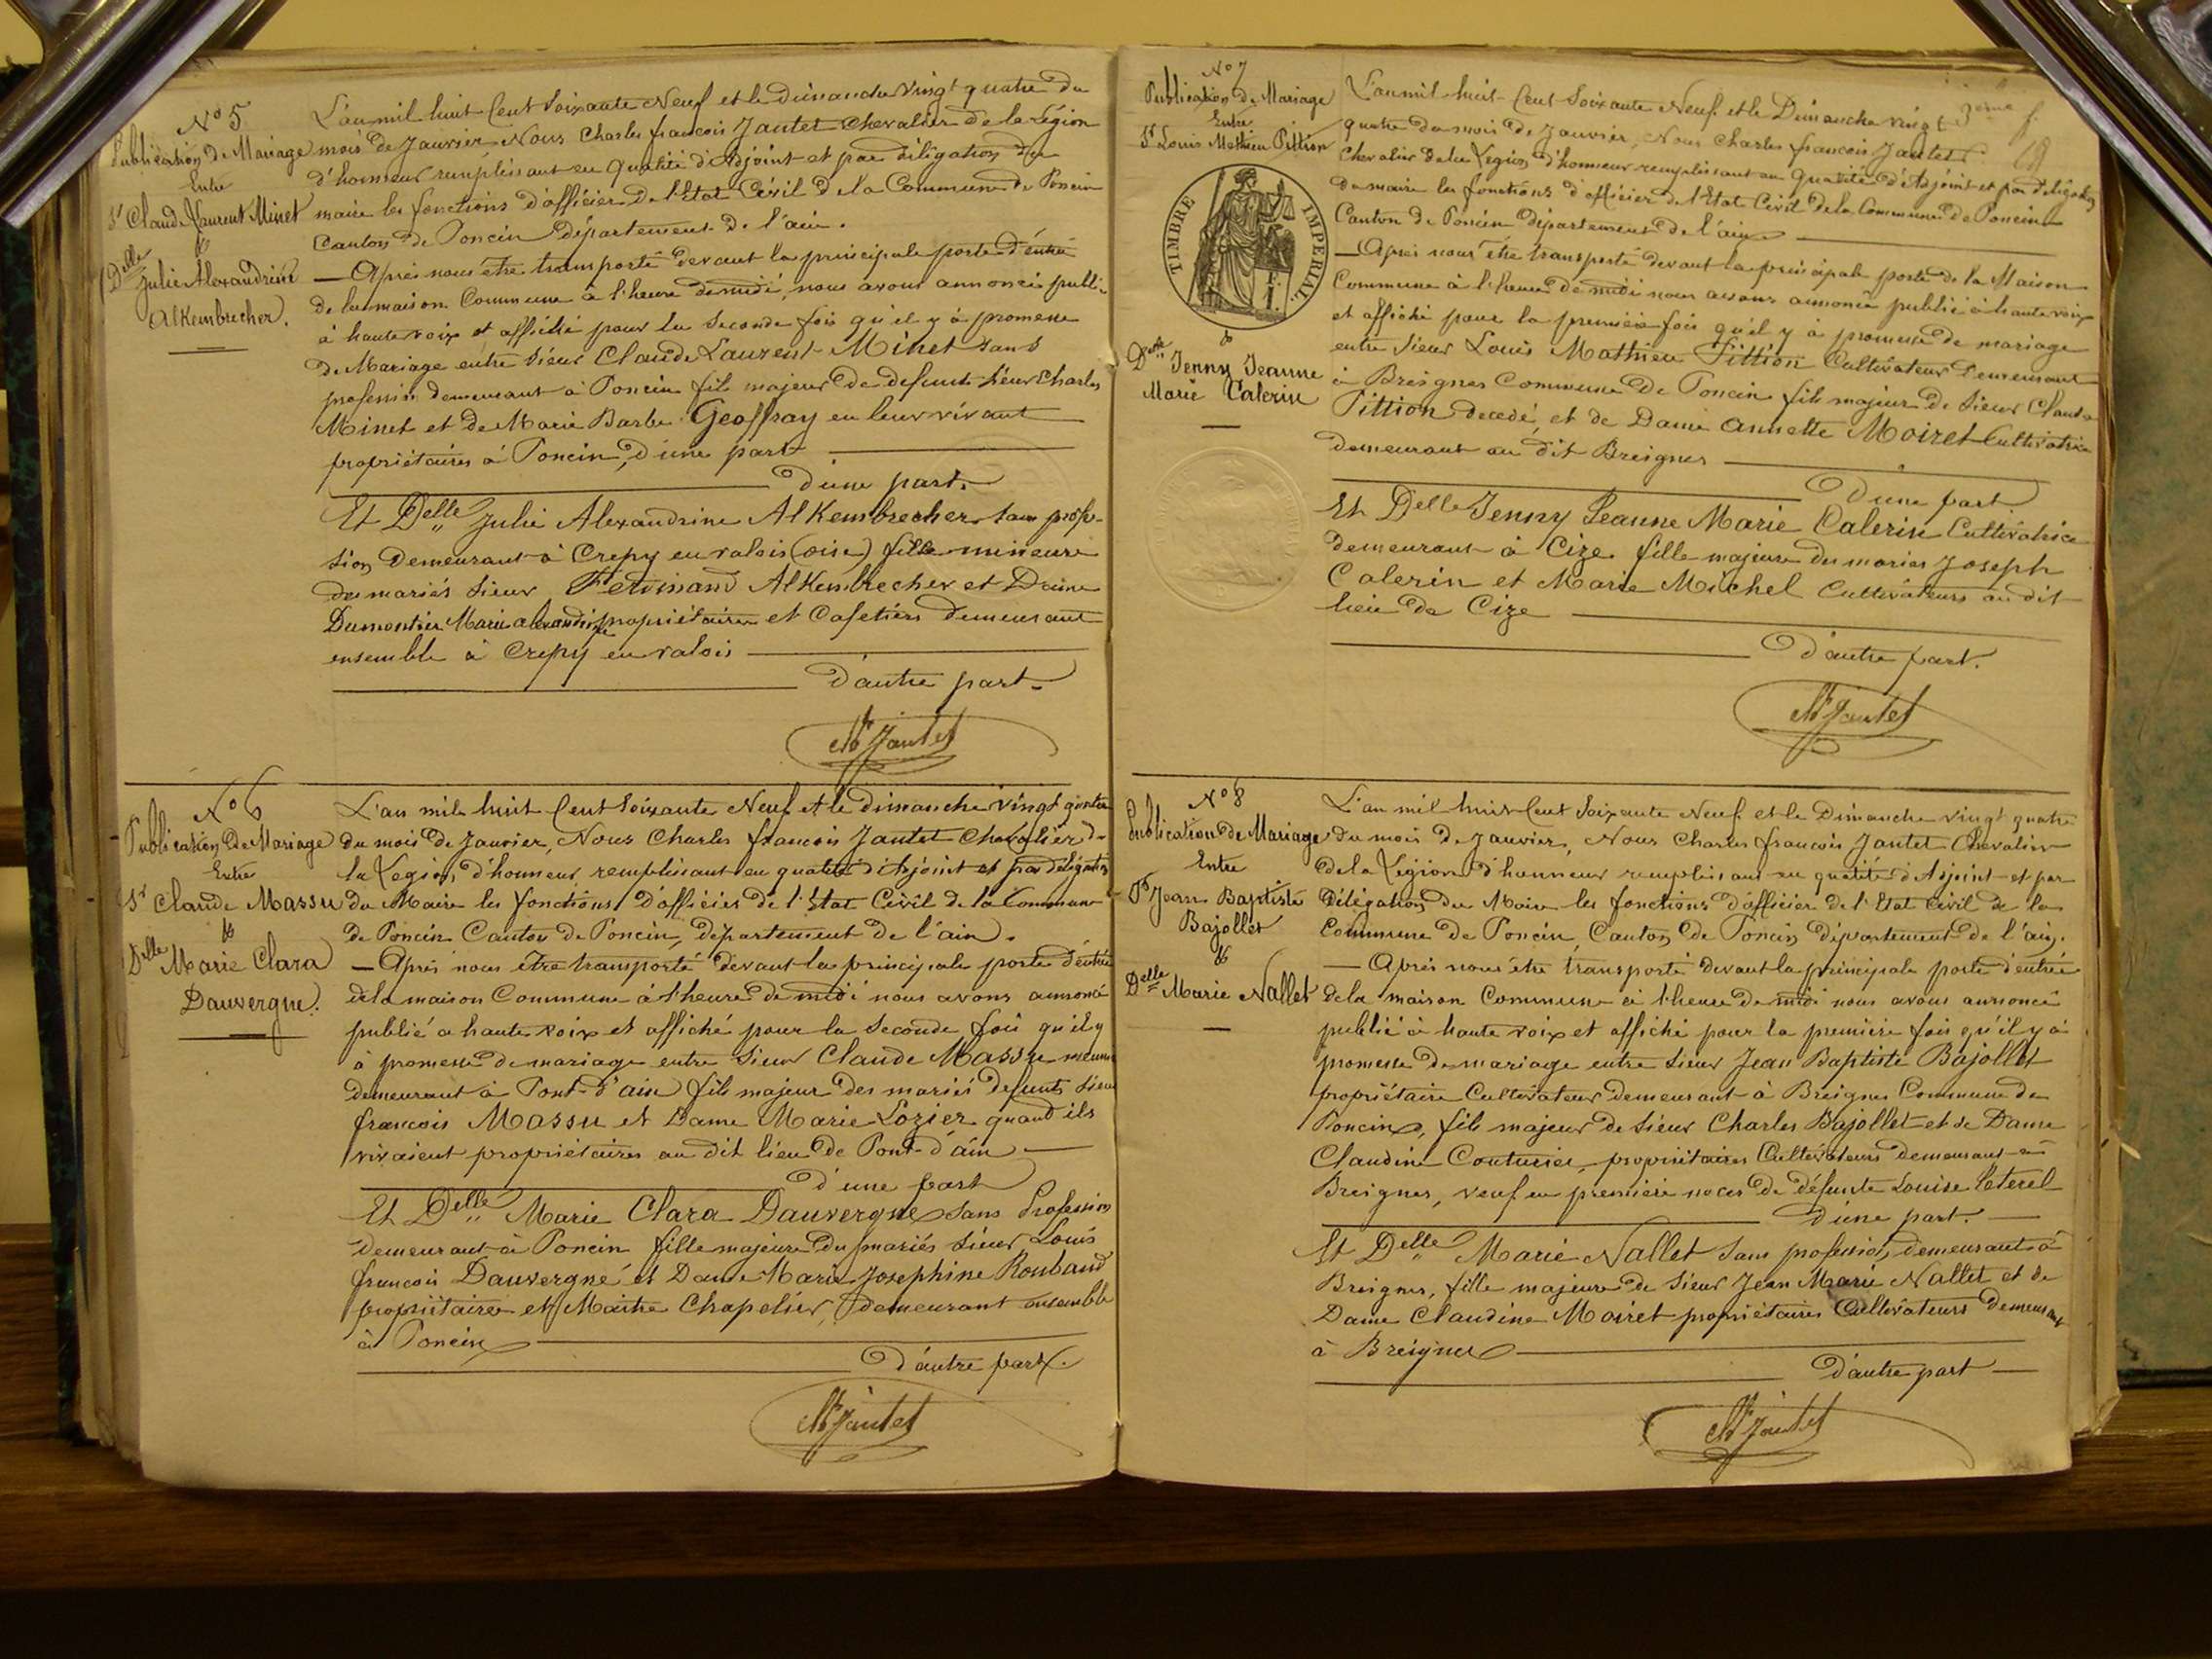 N° 5
Publication de Mariage
Entre
Sr Claude Laurent Minet
&
Delle Julie Alexandrine
Alkembrecher.
L'an mil huit Cent Soixante Neuf et le dimanche vingt quatre du
mois de Janvier, Nous Charles francois Jantet Chevalier de la légion
d'honneur remplissant en qualité d'Adjoint et par délégation du
maire les fonctions d'officier de l'Etat Civil de la Commune de Poncin
Canton de Poncin département de l'ain.
— Après nous être transporté devant la principale porte d'entrée
de la maison Commune à l'heure de midi, nous avons annoncé publié
à haute voix et affiché pour la Seconde fois qu'il y à promesse
de Mariage entre Sieur Claude Laurent Minet sans
profession demeurant à Poncin fils majeur de defunts Sieur Charles
Minet et de Marie Barbe Geoffray en leur vivant
propriétaires à Poncin, d'une part
d'une part.
Et Delle Julie Alexandrine Alkembrecher sans profes-
sion demeurant à Crepy en valois (oise) fille mineure
des mariés Sieur Ferdinand Alkembrecher et Dame
Dumontier Marie alexandrine propriétaires et Cafetiers demeurant
ensemble à Crepy en valois
d'autre part.
Ch Jantet
N° 6
Publication de Mariage
Entre
Sr Claude Massu
&
Delle Marie Clara
Dauvergne.
L'an mil huit Cent Soixante Neuf et le dimanche vingt quatre
du mois de Janvier, Nous Charles francois Jantet Chevalier de
la Legion d'honneur remplissant en qualité d'Adjoint et par délégation
du Maire les fonctions d'officier de l'Etat Civil de la Commune
de Poncin Canton de Poncin, département de l'ain.
— Après nous être transporté devant la principale porte d'entrée
de la maison Commune à l'heure de midi nous avons annoncé
publié a haute voix et affiché pour la Seconde fois qu'il y
à promesse de mariage entre Sieur Claude Massu
demeurant à Pont-d'ain fils majeur des mariés defunts Sieur
francois Massu et Dame Marie Lozier quand ils
vivaient propriétaires au dit lieu de Pont-d'ain
d'une part
Et Delle Marie Clara Dauvergne sans Profession
demeurant à Poncin fille majeure du mariés Sieur Louis
francois Dauvergne et Dame Marie Josephine Roubaud
propriétaires et Maitre Chapelier, demeurant ensemble
à Poncin
d'autre part.
Ch Jantet
N° 7
Publication de Mariage
Entre
Sr Louis Mathieu Pittion
TIMBRE IMPERIAL
&
Delle Jenny Jeanne
Marie Calerin
3eme f.
L'an mil huit Cent Soixante Neuf et le Dimanche vingt
quatre du mois de Janvier, Nous Charles francois Jantet
Chevalier de la Legion d'honneur remplissant en qualité d'Adjoint et par délégation
du maire les fonctions d'officier de l'Etat Civil de la Commune de Poncin
Canton de Poncin département de l'ain
— Après nous être transporté devant la principale porte de la Maison
Commune à l'heure de midi nous avons annoncé publié à haute voix
et affiché pour la première fois qu'il y à promesse de mariage
entre Sieur Louis Mathieu Pittion Cultivateur demeurant
à Breignes Commune de Poncin fils majeur de Sieur Claude
Pittion decedé, et de Dame Annette Moiret Cultivatrice
demeurant au dit Breignes
d'une part
Et Delle Jenny Jeanne Marie Calerin Cultivatrice
demeurant à Cize fille majeure des mariés Joseph
Calerin et Marie Michel Cultivateurs au dit
lieu de Cize
d'autre part.
Ch Jantet
N° 8
Publication de Mariage
Entre
Sr Jean Baptiste
Bajollet
&
Delle Marie Nallet
L'an mil huit Cent Soixante Neuf et le Dimanche vingt quatre
du mois de Janvier, Nous Charles francois Jantet Chevalier
de la Légion d'honneur remplissant en qualité d'Adjoint et par
délégation du Maire les fonctions d'officier de l'Etat Civil de la
Commune de Poncin, Canton de Poncin département de l'ain.
— Après nous être transporté devant la principale porte d'entrée
de la maison Commune à l'heure de midi nous avons annoncé
publié à haute voix et affiché pour la première fois qu'il y à
promesse de mariage entre Sieur Jean Baptiste Bajollet
propriétaire Cultivateur demeurant à Breignes Commune de
Poncin, fils majeur de Sieur Charles Bajollet et de Dame
Claudine Couturier, propriétaires Cultivateurs demeurant à
Breignes, veuf en première noces de défunte Louise
d'une part.
Et Delle Marie Nallet sans profession, demeurant à
Breignes, fille majeure de Sieur Jean Marie Nallet et de
Dame Claudine Moiret propriétaires Cultivateurs demeurant
à Breignes
d'autre part
Ch Jantet